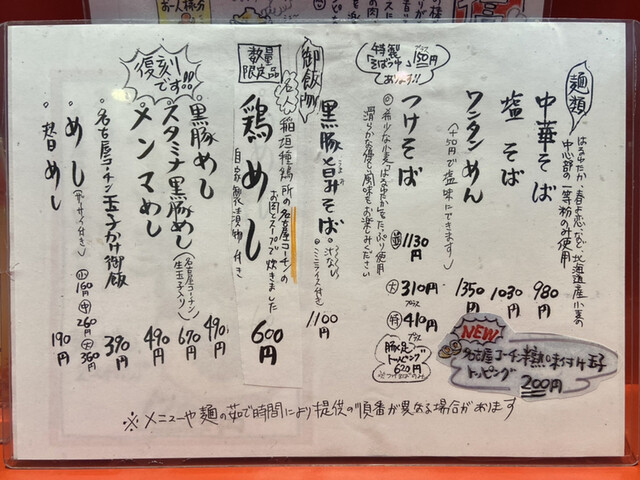 麺類
はるゆたか、春よ恋など、北海道産小麦の
中心部の一等粉のみ使用
中華そば 980円
塩そば 1030円
ワンタンめん 1350円
(+50円で塩味にできます)
特製
そばつゆ プラス150円
あります!!
つけそば
◎希少な小麦はるゆたかをたっぷり使用
滑らかな優しい風味をお楽しみください
並 1130円
大 プラス310円
特 プラス410円
トッピング
620円
黒豚旨みそば 1100円
汁なし
ミニライス付き
御飯物
数量
限定品
名人 稲垣種鶏所の名古屋コーチンの
お肉とスープで炊きました
鶏めし 600円
自家製漬物付き
復刻
です!!
黒豚めし 490円
スタミナ黒豚めし 670円
(名古屋コーチン
生玉子入り)
メンマめし 490円
名古屋コーチン玉子かけ御飯 390円
めし
(ザーサイ付き)
小 160円
中 260円
大 360円
替めし 190円
NEW
名古屋コーチン半熟味付け玉子
トッピング
200円
※メニューや麺の茹で時間により提供の順番が異なる場合があります